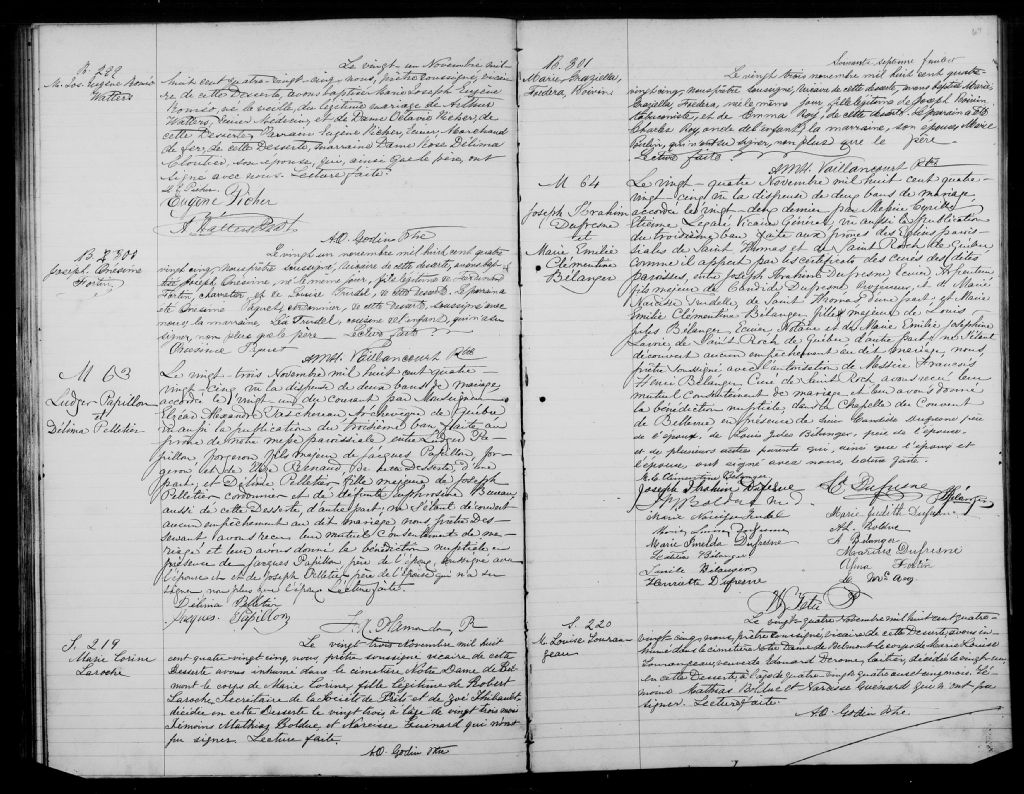 B. 299
M. Jos. Eugène Roméo
Watters
Le vingt un Novembre mil
huit cent quatre-vingt-cinq nous, prêtre soussigné, vicai-
re de cette Desserte, avons baptisé Marie Joseph Eugène
Roméo, né la veille, du légitime mariage de Arthur
Watters, Ecuier Médecin, et de Dame Octavie Picher, de
cette Desserte. Parrain Eugène Picher, Ecuier Marchand
de fer, de cette Desserte, marraine Dame Rose Délima
Cloutier, son épouse, qui, ainsi que le père, ont
signé avec nous. Lecture faite.
Eugène Picher
A. O. Godin Ptre
B. 300
Joseph Onésime
Fortin
Le vingt un novembre mil huit cent quatre
vingt cinq, nous prêtre soussigné, vicaire de cette desserte, avons
Joseph Onésime, né le même jour, fils légitime de
Fortin, charretier, et de Louise Trudel, de cette desserte. Le parrain a
Onésime Paquet, cordonnier, de cette desserte, soussigné avec
nous, la marraine, Léa Trudel, cousine de l'enfant, qui n'a su
signer, non plus que le père. Lecture faite
A M H. Vaillancourt Ptre
M 63
Ludger Papillon
et
Délima Pelletier
Le vingt-trois Novembre mil huit cent quatre-
vingt-cinq vu la dispense de deux bans de mariage
accordé le vingt un du courant par Monseigneur
Elzéar Alexandre Taschereau Archevêque de Québec
vu aussi la publication du troisième ban faite au
prône de notre messe paroissiale entre Ludger Pa-
pillon, forgeron fils majeur de Jacques Papillon, for-
geron et de Renaud, de cette Desserte, d'une
part, et Délima Pelletier fille majeure de Joseph
Pelletier cordonnier et de défunte Euphrosine Bureau
aussi de cette Desserte, d'autre part; ne s'étant découvert
aucun empêchement au dit mariage nous, prêtre Des-
servant avons reçu leur mutuel consentement de ma-
riage et leur avons donné la bénédiction nuptiale en
présence de Jacques Papillon père de l'époux, soussigné avec
l'épouse et de Joseph Pelletier père de l'épouse qui n'a su
signer non plus que l'époux. Lecture faite.
Délima Pelletier
Jacques Papillon
S. 219
Marie Corine
Laroche
Le vingt trois Novembre mil huit
cent quatre-vingt cinq, nous, prêtre soussigné, vicaire de cette
Desserte avons inhumé dans le cimetière Notre Dame de Bel-
mont le corps de Marie Corine, fille légitime de Robert
Laroche Secrétaire de la Société de Prêts et de Zoé Thibault
décédée en cette Desserte le vingt trois à l'âge de vingt trois mois
Témoins Mathias Bolduc et Narcisse Guénard qui n'ont
pu signer. Lecture faite.
A. O. Godin Ptre
67
Soixante septième feuillet
B. 301
Marie, Graziella,
Fædera, Boivin
Le vingt trois novembre mil huit cent quatre-
vingt cinq, nous prêtre soussigné, vicaire de cette desserte, avons baptisé Marie
Graziella, Fædera, née le même jour, fille légitime de Joseph Boivin
et de Emma Roy, de cette desserte. Le parrain a été
Charles Roy, oncle de l'enfant, la marraine, son épouse, Marie
qui n'ont su signer, non plus que le père.
Lecture faite
A M H. Vaillancourt Ptre
M 64
Joseph Ibrahim
Dufresne
et
Marie Emélie
Clémentine
Bélanger
Le vingt-quatre Novembre mil huit cent quatre-
vingt cinq vu la dispense de deux bans de mariage
accordé le vingt-deux dernier par Messire Cyrille
Etienne Légaré Vicaire Général, vu aussi la publication
du troisième ban faite aux prônes des Eglises parois-
siales de Saint Thomas et de Saint Roch de Québec
comme il appert par les certificats des curés des dites
paroisses, entre Joseph Ibrahim Dufresne Ecuier Arpenteur
fils majeur de Candide Dufresne et de Marie
Narcisse Trudelle, de Saint Thomas d'une part, et Marie
Emélie Clémentine Bélanger fille majeure de Louis
Jules Bélanger, Ecuier Notaire et de Marie Emélie Joséphine
Lavoie, de Saint Roch de Québec d'autre part; ne s'étant
découvert aucun empêchement au dit mariage, nous,
prêtre soussigné avec autorisation de Messire François
Henri Bélanger, Curé de Saint Roch avons reçu leur
mutuel consentement de mariage et leur avons donné
la bénédiction nuptiale, dans la Chapelle du Couvent
de Bellevue en présence de Sieur Candide Dufresne père
de l'époux, de Louis Jules Bélanger, père de l'épouse,
et de plusieurs autres parents qui, ainsi que l'époux et
l'épouse, ont signé avec nous, lecture faite.
M. E. Clémentine Bélanger
Joseph Ibrahim Dufresne
C. Dufresne
Bélanger
Marie Narcisse Trudel
Marie Judith Dufresne
Dufresne
Ad. Bolduc
Marie Imelda Dufresne
A Bélanger
Letitia Bélanger
Dufresne
Camille Bélanger
Fortin
Henriette Dufresne
S. 220
M. Louise Touran-
geau
Le vingt quatre Novembre mil huit cent quatre-
vingt cinq, nous, prêtre soussigné, vicaire de cette Desserte, avons in-
humé dans le cimetière Notre Dame de Belmont le corps de Marie Louise
Tourangeau, veuve de Edouard Derome, décédée le
en cette Desserte, à l'âge de quatre-vingt quatre ans et cinq mois. Té-
moins Mathias Bolduc et Narcisse Guénard qui n'ont pu
signer. Lecture faite
A. O. Godin Ptre